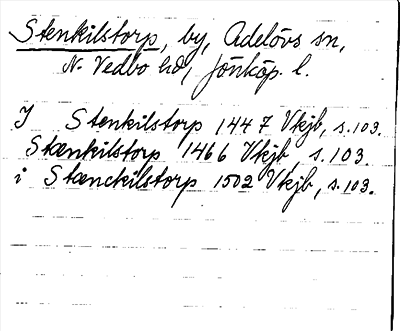 Stenkilstorp, by, Adelövs sn,
N. Vedbo hd, Jönköp. l.
I Stenkilstorp 1447 Vkjb, s. 103.
Stænkilstorp 1466 Vkjb, s. 103.
i Stænckilstorp 1502 Vkjb, s. 103.